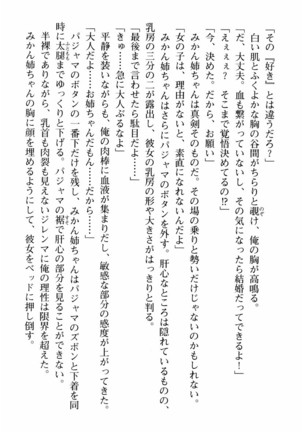 「その『好き』とは違うだろ？」
白い肌とふくよかな胸の谷間がちらりと覗け、俺の胸が高鳴る。
「だ、大丈夫。血も繋がっていないし、その気になったら結婚だってできるよ！」
「えぇぇぇ？　そこまで覚悟決めてるの!?」
「今、決めた。だから、お願い」
みかん姉ちゃんは真剣そのものだ。その場の乗りと勢いだけじゃないのかよ！
「女の子は、理由がないと、素直になれないんだよ」
みかん姉ちゃんはさらにパジャマのボタンを外す。肝心なところは隠れているものの、
乳房の三分の二が露出し、彼女の乳房の形や大きさがはっきりと判る。
「最後まで言わせたら駄目だよ……」
「きゅ……急に大人ぶるなよ」
「大人だよ……お姉ちゃんだもん……だから……」
平静を装いながらも、俺の肉棒に血液が集まりだし、敏感な部分の感度が上がってきた。
パジャマのボタンの一番下だけを残し、みかん姉ちゃんはパジャマのズボンと下着を同
時に太腿までゆっくりと下げる。パジャマの裾で肝心の部分を見ることができない。
半裸でありながら、乳首も肉裂も見えないジレンマに俺の理性は限界を超えた。
みかん姉ちゃんの胸に顔を埋めるようにして、彼女をベッドに押し倒す。